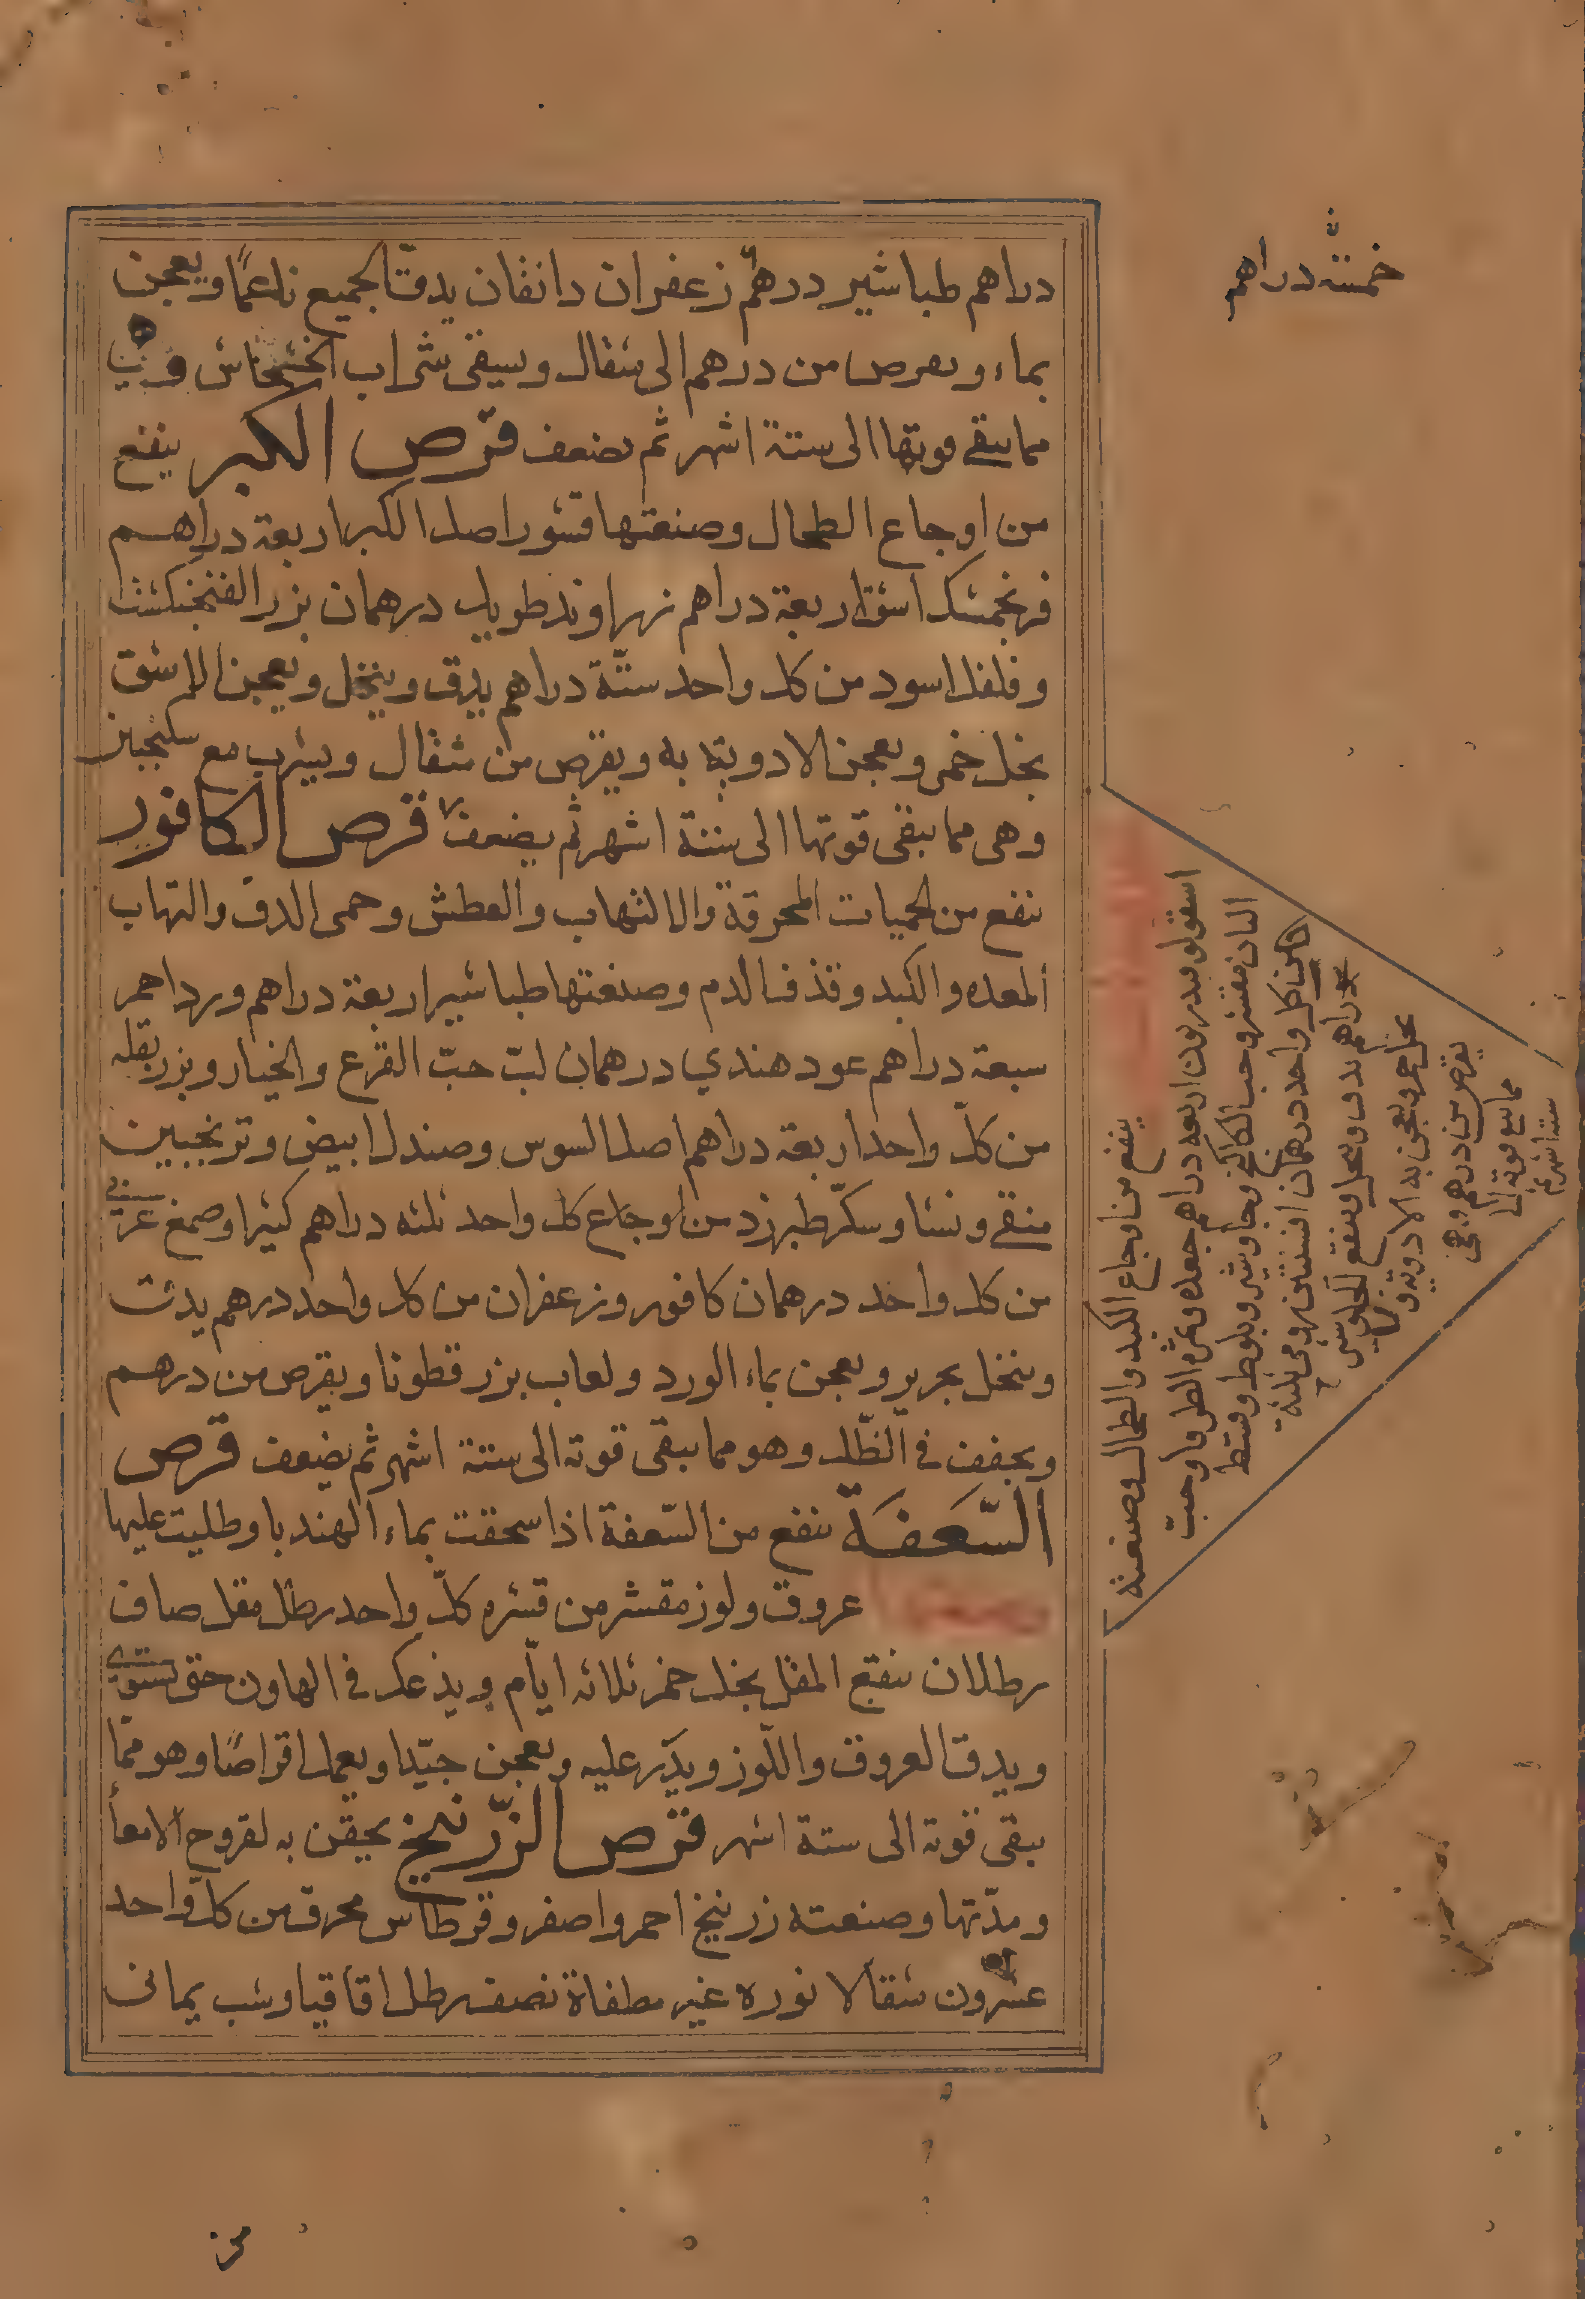 دراهم طباشير درهم زعفران دانقان يدق الجميع ناعمًا ويعجن
بماء ويقرص من درهم الى مثقال ويسقى بشراب الخشخاش وهى
مما يبقى قوتها الى ستة اشهر ثم يضعف قرص الكبر ينفع
من اوجاع الطحال وصنعتها قشور اصل الكبر اربعة دراهم
فرنجمشك اشق اربعة دراهم زراوند طويل درهمان بزر الفنجنكشت
وفلفل اسود من كل واحد ستّة دراهم يدق وينخل ويعجن الاشق
بخل خمر ويعجن الادوية به ويقرص من مثقال ويشرب مع سكنجبين
وهى مما يبقى قوتها الى ستة اشهر ثم يضعف قرص الكافور
ينفع من الحميات المحرقة والالتهاب والعطش وحمى الدق والتهاب
المعده والكبد وقذف الدم وصنعتها طباشير اربعة دراهم ورد احمر
سبعة دراهم عود هندي درهمان لبّ حبّ القرع والخيار وبزر بقله
من كلّ واحد اربعة دراهم اصل السوس وصندل ابيض وترنجبين
منقى ونشا وسكّر طبرزد من اوجاع كل واحد ثلثه دراهم كثيرا وصمغ عربى
من كل واحد درهمان كافور وزعفران من كل واحد درهم يدق
وينخل بحرير ويعجن بماء الورد ولعاب بزر قطونا ويقرص من درهم
ويجفف فى الظّل وهو مما يبقى قوته الى ستة اشهر ثم يضعف قرص
السّعفَة ينفع من السّعفة اذا سحقت بماء الهندبا وطليت عليها
عروق ولوز مقشر من قشره كلّ واحد رطل مقل صاف
رطلان ينقع المقل بخل خمر ثلاثه ايّام ويذعك فى الهاون حتى يستوى
ويدق العروق واللّوز ويذر عليه ويعجن جيّدا ويعمل اقراصًا وهو ممّا
يبقى قوته الى ستة اشهر قرص الزّرنيخ يحقن به لقروح الامعأ
ومدّتها وصنعته زرنيخ احمر واصفر وقرطاس محرق من كلّ واحد
عشرون مثقالا نوره غير مطفاة نصف رطل اقاقيا وشب يمانى
خمسة دراهم
ينفع من اوجاع الكبد والطحال وصنعته
اسقولوقندريون اربعه دراهم جعده وثمرة الطرفا وحبّ
البان مقشر وحب الكاكنج وجاوشير وبلوط وقسط
من كل واحد درهمان افسنتين رومى ثلثة
دراهم يدق وينخل وينقع
بخل خمر ويعجن به الادوية
يقرص من درهم وهى
مما يبقى قوته الى
ستة اشهر ثم